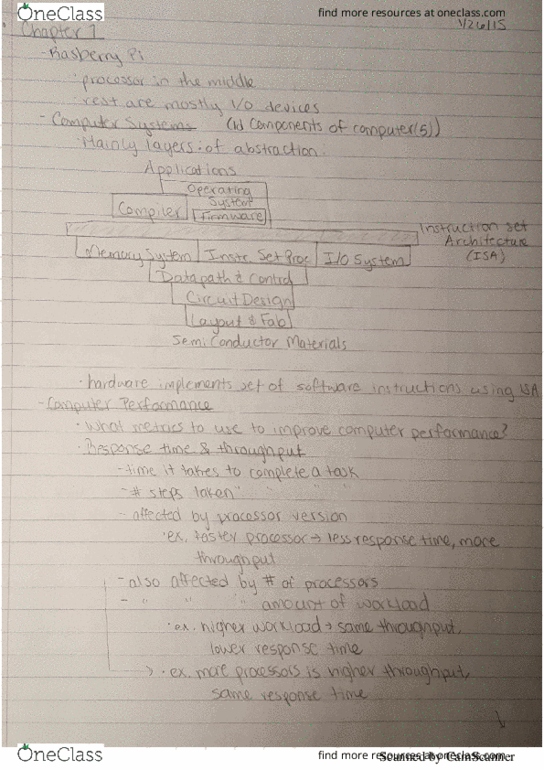 OneClass
find more resources at oneclass.com
1/26/15
Chapter 1
- Rasberry Pi
· processor in the middle
· rest are mostly I/O devices
- Computer Systems (Id Components of computer(5))
· Mainly layers of abstraction:
Applications
Operating
System
Compiler
Firmware
Instruction Set
Architecture
(ISA)
Memory System | Instr. Set Proc | I/O System
Datapath & Control
Circuit Design
Layout & Fab
Semi Conductor Materials
· hardware implements set of software instructions using ISA
- Computer Performance
· What metrics to use to improve computer performance?
· Response time & throughput
- time it takes to complete a task
- # steps taken " " " "
- affected by processor version
· ex. faster processor → less response time, more
throughput
- also affected by # of processors
- " " " amount of workload
· ex. higher workload → same throughput,
lower response time
→ · ex. more processors is higher throughput,
same response time
OneClass
find more resources at oneclass.com
Scanned by CamScanner